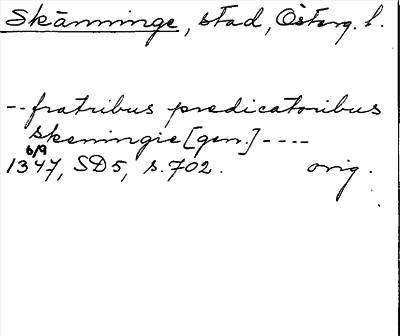 Skänninge, stad, Österg. l.
-- fratribus predicatoribus
skeningie [gen.] ----
6/9
1347, SD5, s. 702. orig.